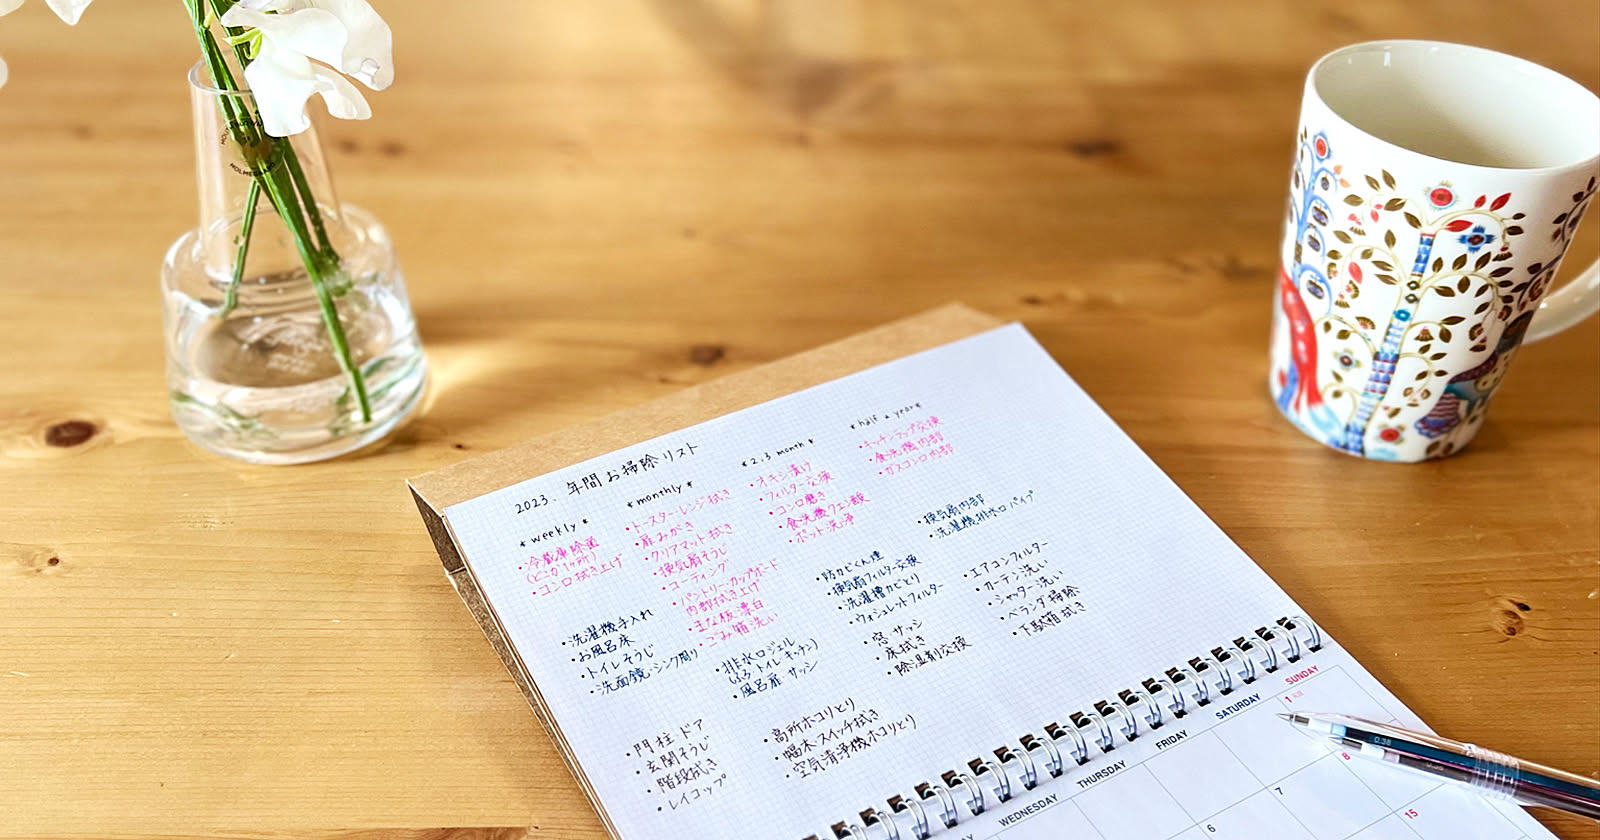 2023. 年間お掃除リスト
*weekly*
・冷蔵庫除菌
(どこか1ヶ所)
・コンロ拭き上げ
・洗濯機手入れ
・お風呂床
・トイレそうじ
・洗面鏡・シンク周り
・門柱・ドア
・玄関そうじ
・階段拭き
・レイコップ
*monthly*
・トースター・レンジ拭き
・扉みがき
・クリアマット拭き
・換気扇そうじ
・コーティング
・パントリー・カップボード
内部拭き上げ
・まな板漂白
・ごみ箱洗い
・排水口ジェル
(ふろ・トイレ・キッチン)
・風呂扉・サッシ
・高所ホコリとり
・幅木・スイッチ拭き
・空気清浄機ホコリとり
*2.3 month*
・オキシ漬け
・フィルター交換
・コンロ磨き
・食洗機クエン酸
・ポット洗浄
・防カビくん煙
・換気扇フィルター交換
・洗濯槽カビとり
・ウォシュレットフィルター
・窓・サッシ
・床拭き
・除湿剤交換
*half a year*
・キッチンフップ交換
・食洗機内部
・ガスコンロ内部
・換気扇内部
・洗濯機排水口パイプ
・エアコンフィルター
・カーテン洗い
・シャッター洗い
・ベランダ掃除
・下駄箱拭き
WEDNESDAY THURSDAY FRIDAY SATURDAY SUNDAY
1
7 8
6
15
0.38
HOLMEGAARD